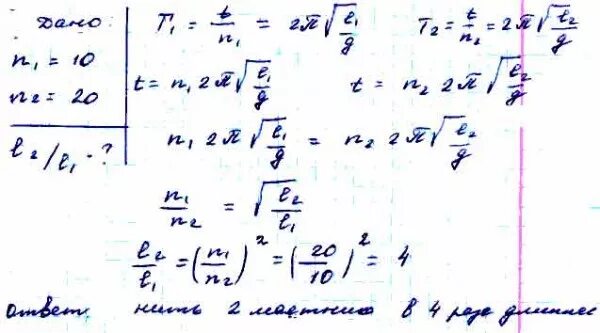 Дано:
n₁ = 10
n₂ = 20
l₂/l₁ - ?
T₁ = t/n₁ = 2π√(l₁/g) T₂ = t/n₂ = 2π√(l₂/g)
t = n₁ 2π√(l₁/g) t = n₂ 2π√(l₂/g)
n₁ 2π√(l₁/g) = n₂ 2π√(l₂/g)
n₁/n₂ = √(l₂/l₁)
l₂/l₁ = (n₁/n₂)² = (20/10)² = 4
ответ нить 2 маятника в 4 раза длиннее